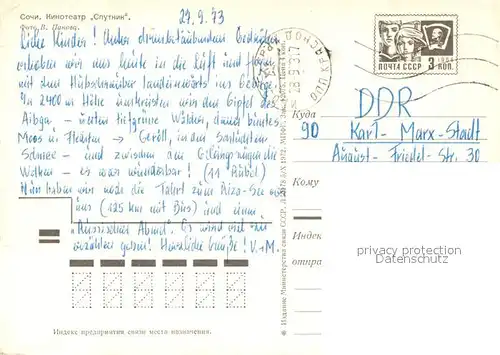 Сочи. Кинотеатр „Спутник".
Фото В. Панова.
29.9.73
Liebe Kinder! Unter
erhoben wir uns heute in die Luft und flogen
mit dem Hubschrauber landeinwärts ins Gebirge.
In 2400 m Höhe umkreisten wir den Gipfel des
Aibga - unten tiefgrüne Wälder, dann buntes
Moos u. Flechten → Geröll, in den Schluchten
Schnee - und zwischen den die
Wolken - es war wunderbar! (11 Rubel)
Nun haben wir noch die Fahrt zum Riza-See vor
uns (125 km mit Bus) und einen
„Russischen Abend". Es wird viel zu
erzählen geben! Herzliche Grüße! V.+M.
ПОЧТА СССР 3 КОП.
Куда
DDR
90 Karl-Marx-Stadt
August-Friedel-Str. 30
Кому
Индек
отпра
privacy protection
Datenschutz
Индекс предприятия связи места назначения.
© Издание Министерства связи СССР.